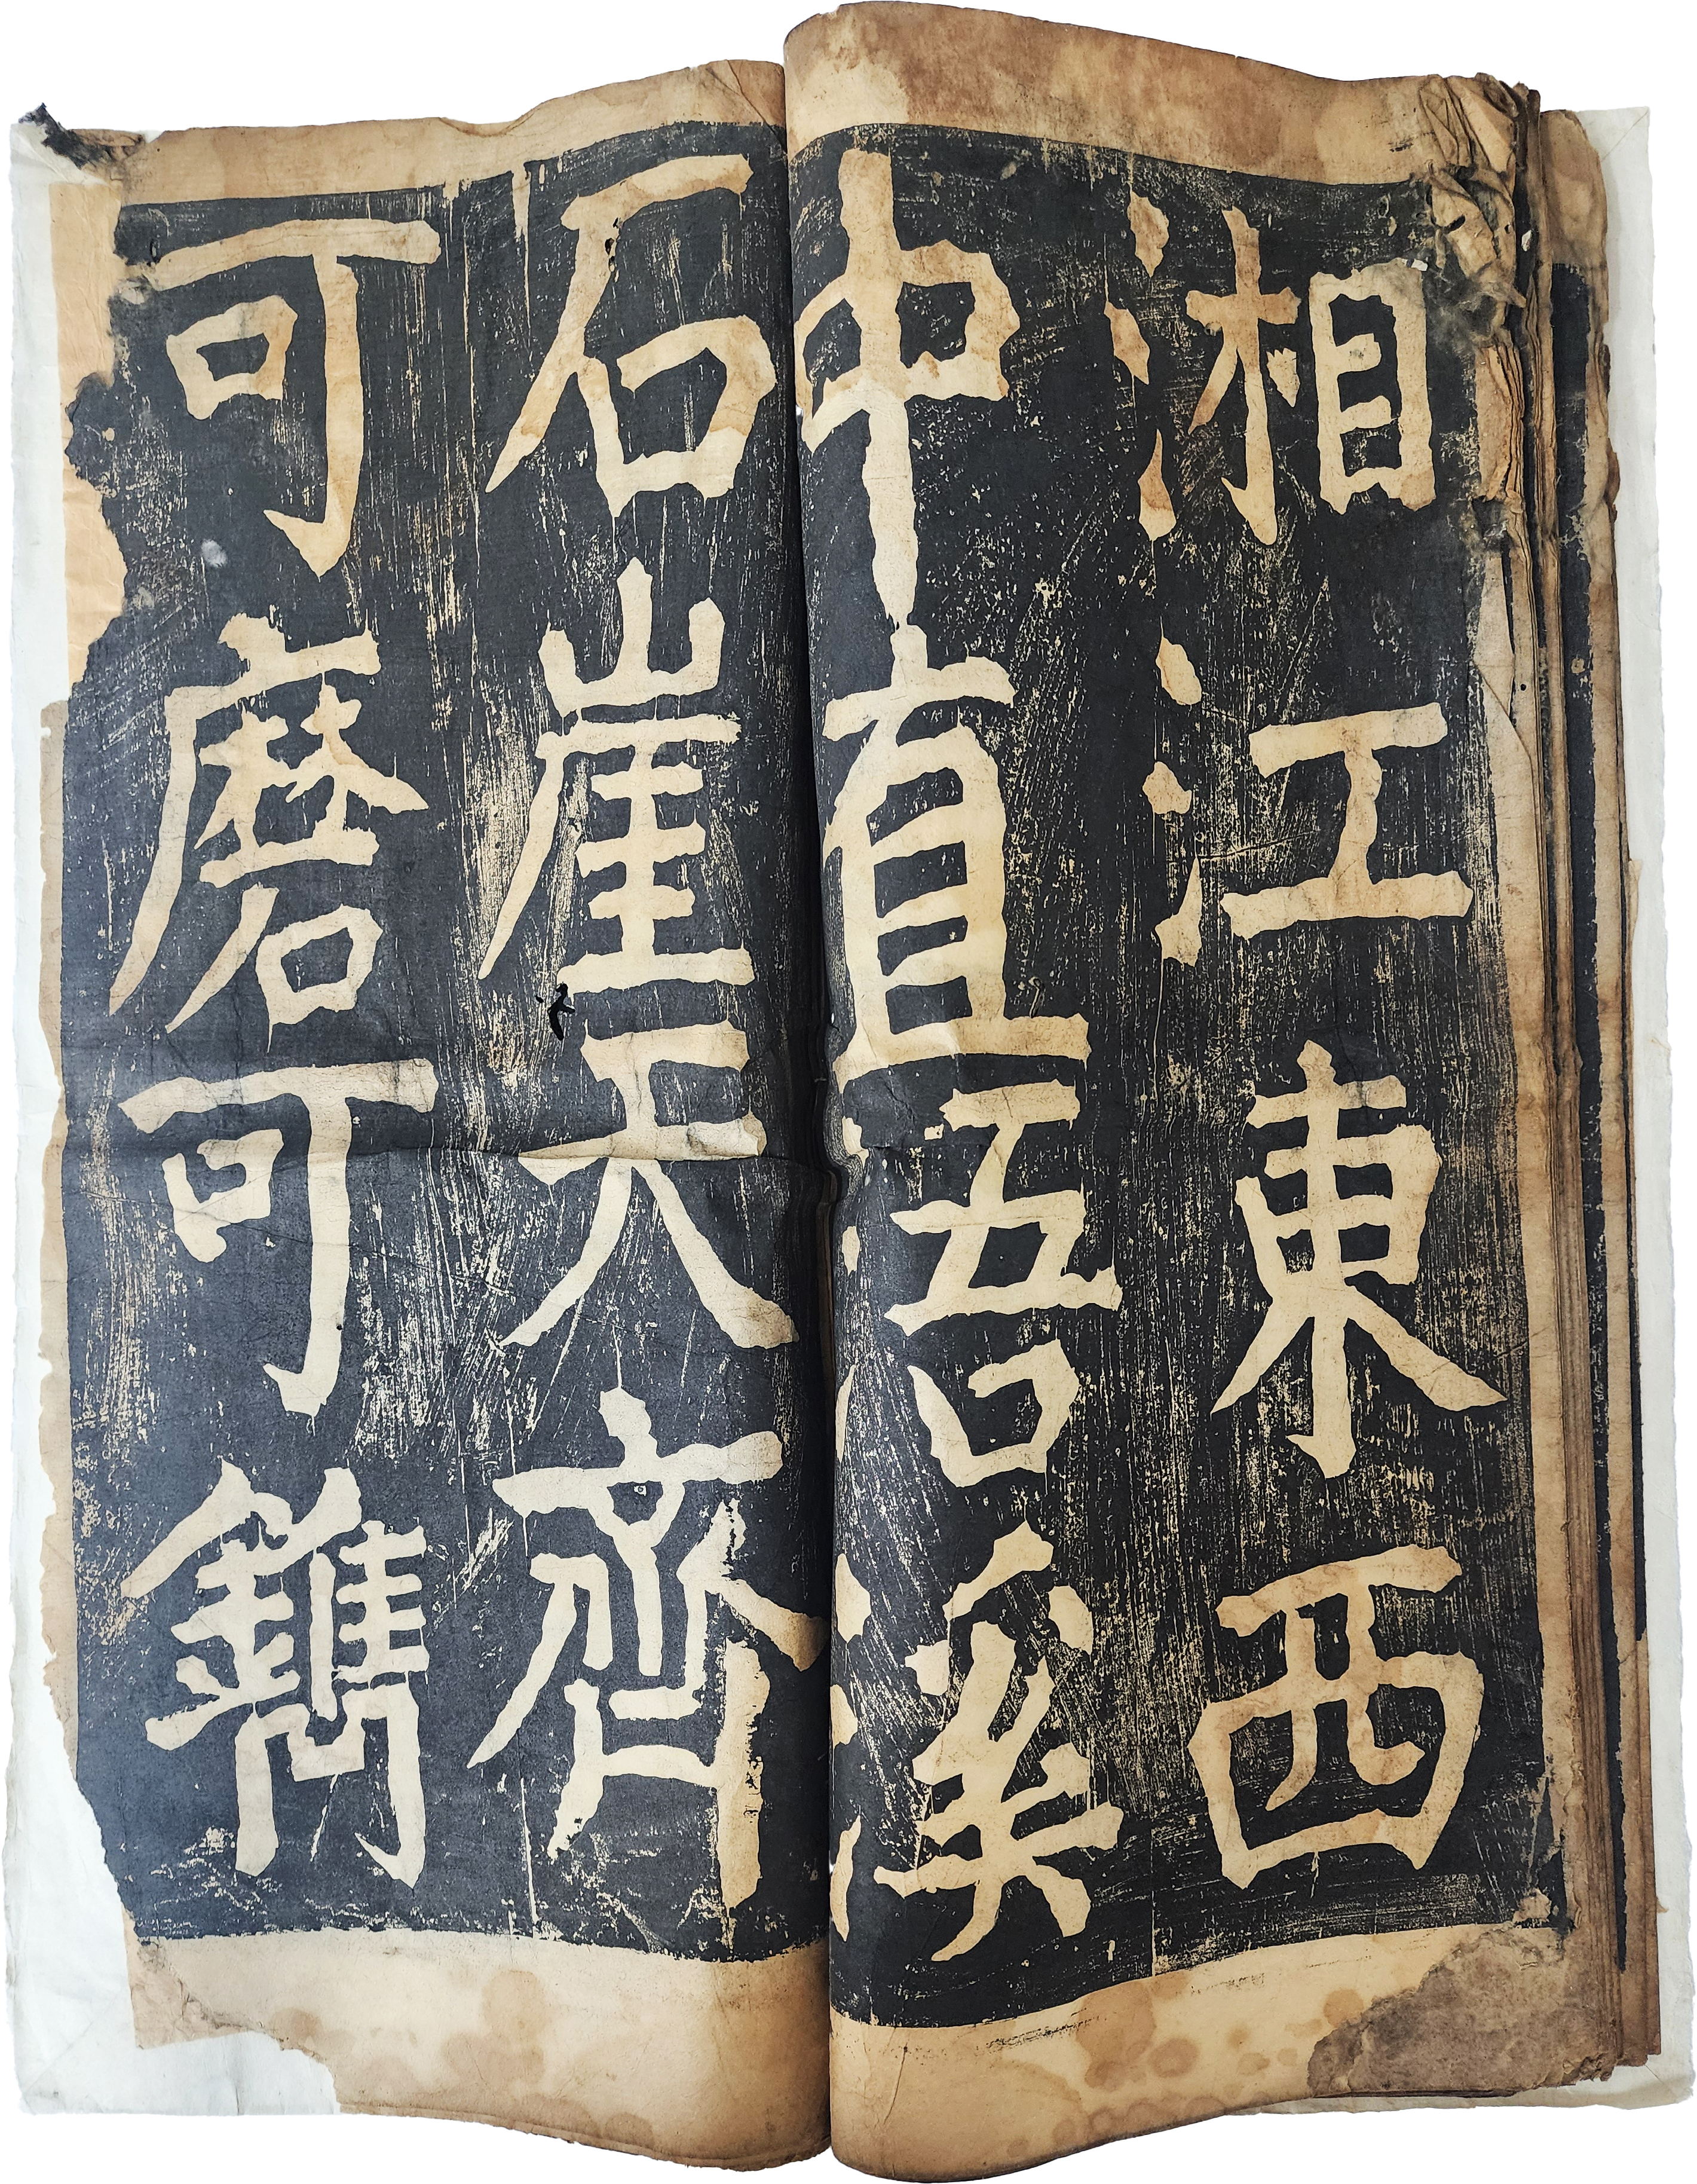 湘江東西
中直浯溪
石崖天齊
可磨可鐫